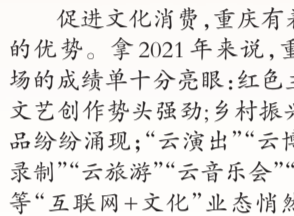 促进文化消费，重庆有
的优势。拿2021年来说，重
场的成绩单十分亮眼：红色
文艺创作势头强劲；乡村振兴
品纷纷涌现；“云演出”“云博
录制”“云旅游”“云音乐会”“
等“互联网+文化”业态悄然